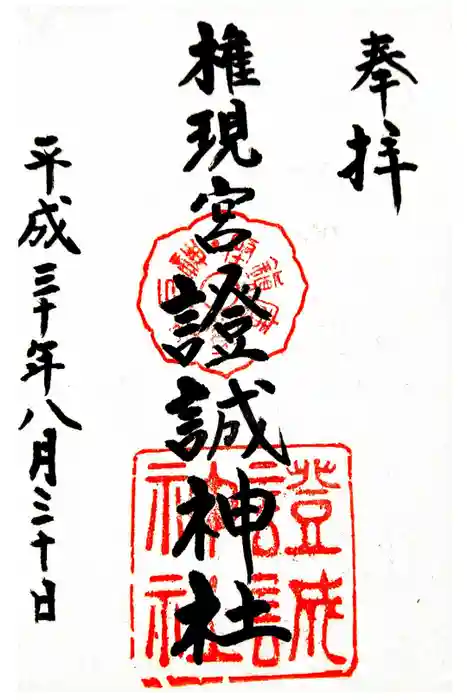 奉拝
権現宮證誠神社
平成三十年八月三十日
證誠神社